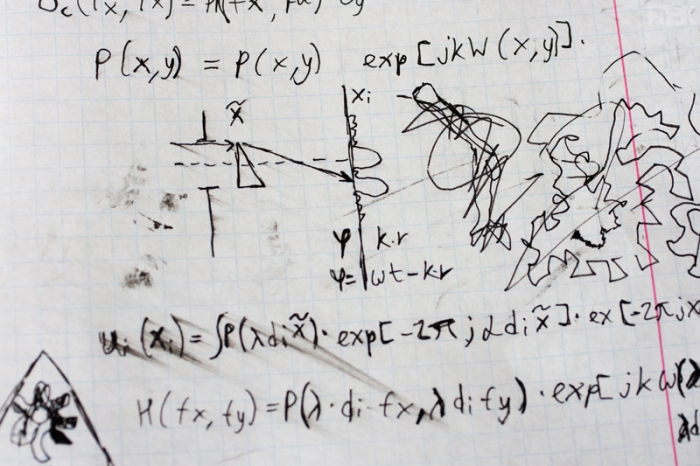 P(x,y) = P(x,y) exp[jkW(x,y)].
x̃ xᵢ
φ k·r
φ= ωt-k·r
uᵢ(xᵢ)=∫P(λdᵢx̃)·exp[-2πjαdᵢx̃]·ex[-2πjx
H(fx,fy)=P(λ·dᵢ·fx,λdᵢfy)·exp[jkW(λ